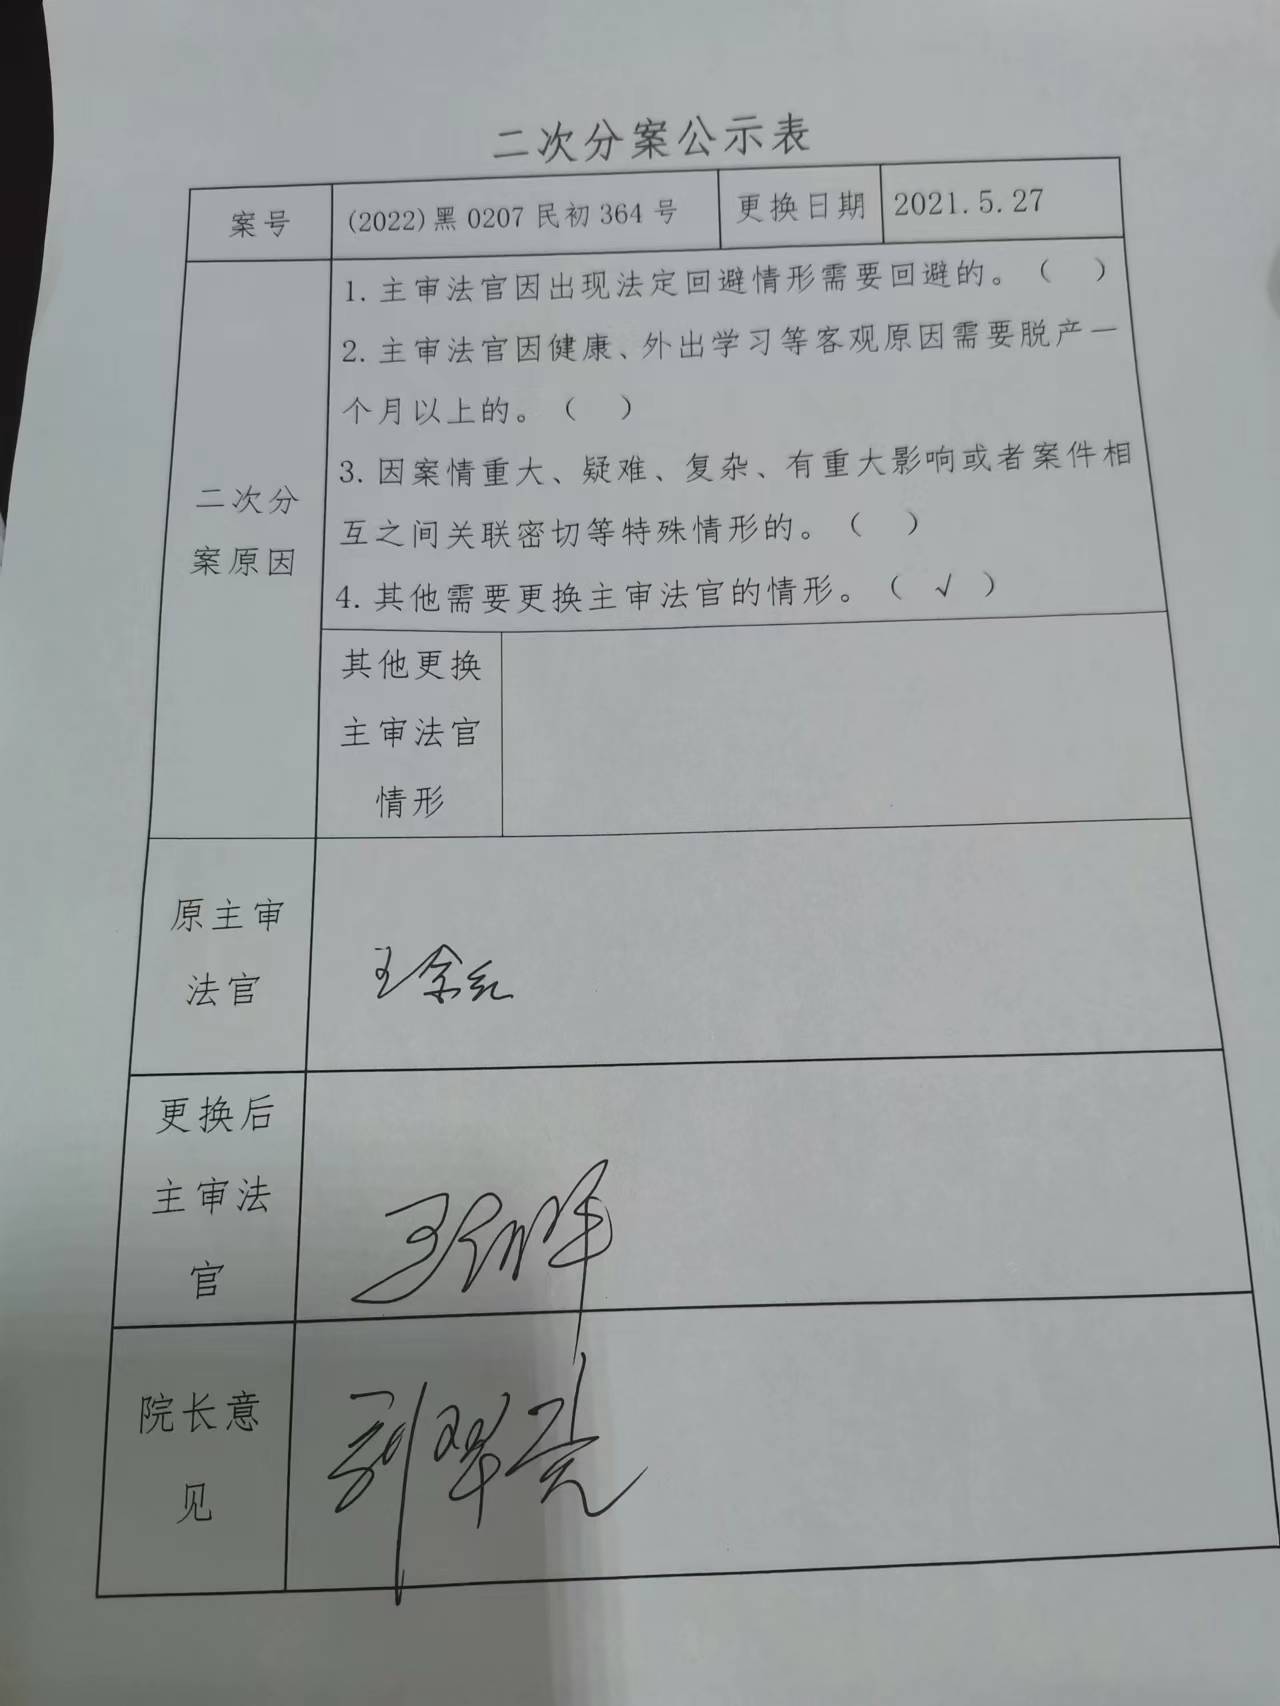 二次分案公示表
案号
(2022)黑 0207 民初 364 号
更换日期
2021.5.27
二次分
案原因
1.主审法官因出现法定回避情形需要回避的。（　）
2.主审法官因健康、外出学习等客观原因需要脱产一
个月以上的。（　）
3.因案情重大、疑难、复杂、有重大影响或者案件相
互之间关联密切等特殊情形的。（　）
4.其他需要更换主审法官的情形。（ √ ）
其他更换
主审法官
情形
原主审
法官
王
更换后
主审法
官
王
院长意
见